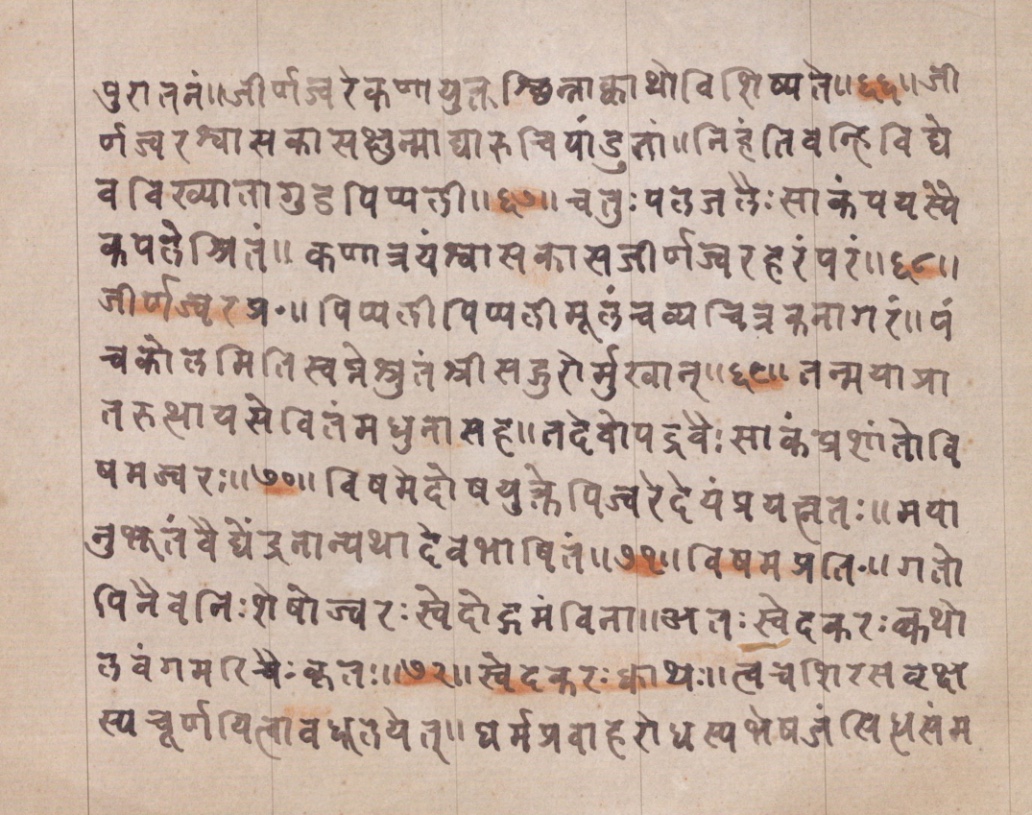 पुरातनं॥जीर्णज्वरेकणायुतश्छिन्नाक्वाथोविशिष्यते॥६६॥जी
र्णज्वरश्वासकासक्षुन्माद्यारुचिपांडुतां॥निहंतिवन्हिविद्ये
वविख्यातागुडपिप्पली॥६७॥चतुःपलजलैःसाकंपयस्ये
कपलेश्रितं॥कणात्रयंश्वासकासजीर्णज्वरहरंपरं॥६८॥
जीर्णज्वरप्र॰॥पिप्पलीपिप्पलीमूलंचव्यचित्रकनागरं॥पं
चकोलमितिस्वप्नेश्रुतंश्रीसद्गुरोर्मुखात्॥६९॥तन्मयाप्रा
तरुत्थायसेवितंमधुनासह॥तदेवोपद्रवैःसाकंप्रशांतोवि
षमज्वरः॥७०॥विषमेदोषयुक्तेपिज्वरेदेयंप्रयत्नतः॥मया
नुभूतंवैद्येंद्रनान्यथादेवभाषितं॥७१॥विषमप्रति॰॥गतो
पिनैवनिःशेषोज्वरःस्वेदोद्गमंविना॥अतःस्वेदकरःक्वथो
लवंगमरिचैःकृतः॥७२॥स्वेदकरःक्वाथः॥त्वचंशिरसवृक्ष
स्यचूर्णयित्वावधूलयेत्॥घर्मप्रवाहरोधस्यभेषजं